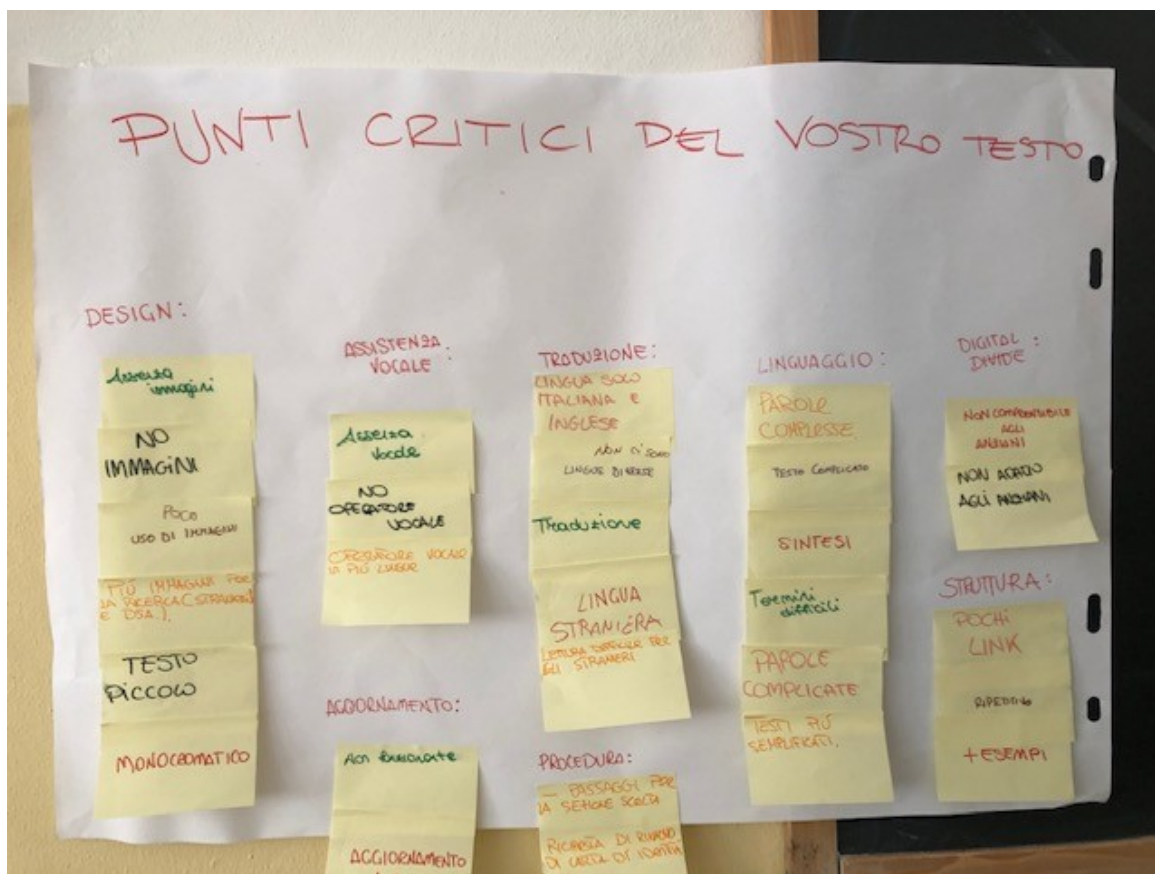 PUNTI CRITICI DEL VOSTRO TESTO
DESIGN:
Assenza
immagini
NO
IMMAGINI
POCO
USO DI IMMAGINI
PIÙ IMMAGINI PER
LA RICERCA (STRANIERI
E DSA).
TESTO
PICCOLO
MONOCROMATICO
ASSISTENZA
VOCALE:
Assenza
Vocale
NO
OPERATORE
VOCALE
OPERATORE VOCALE
IN PIÙ LINGUE
AGGIORNAMENTO:
Non funzionante
AGGIORNAMENTO
TRADUZIONE:
LINGUA SOLO
ITALIANA E
INGLESE
NON CI SONO
LINGUE DIVERSE
Traduzione
LINGUA
STRANIERA
LETTURA DIFFICILE PER
GLI STRANIERI
PROCEDURA:
- PASSAGGI PER
LA SEZIONE SCELTA
RICHIESTA DI RINNOVO
DI CARTA DI IDENTITÀ
LINGUAGGIO:
PAROLE
COMPLESSE
TESTO COMPLICATO
SINTESI
Termini
difficili
PAROLE
COMPLICATE
TESTI PIÙ
SEMPLIFICATI.
DIGITAL
DIVIDE:
NON COMPRENSIBILE
AGLI
ANZIANI
NON ADATTO
AGLI ANZIANI
STRUTTURA:
POCHI
LINK
RIPETITIVO
+ ESEMPI